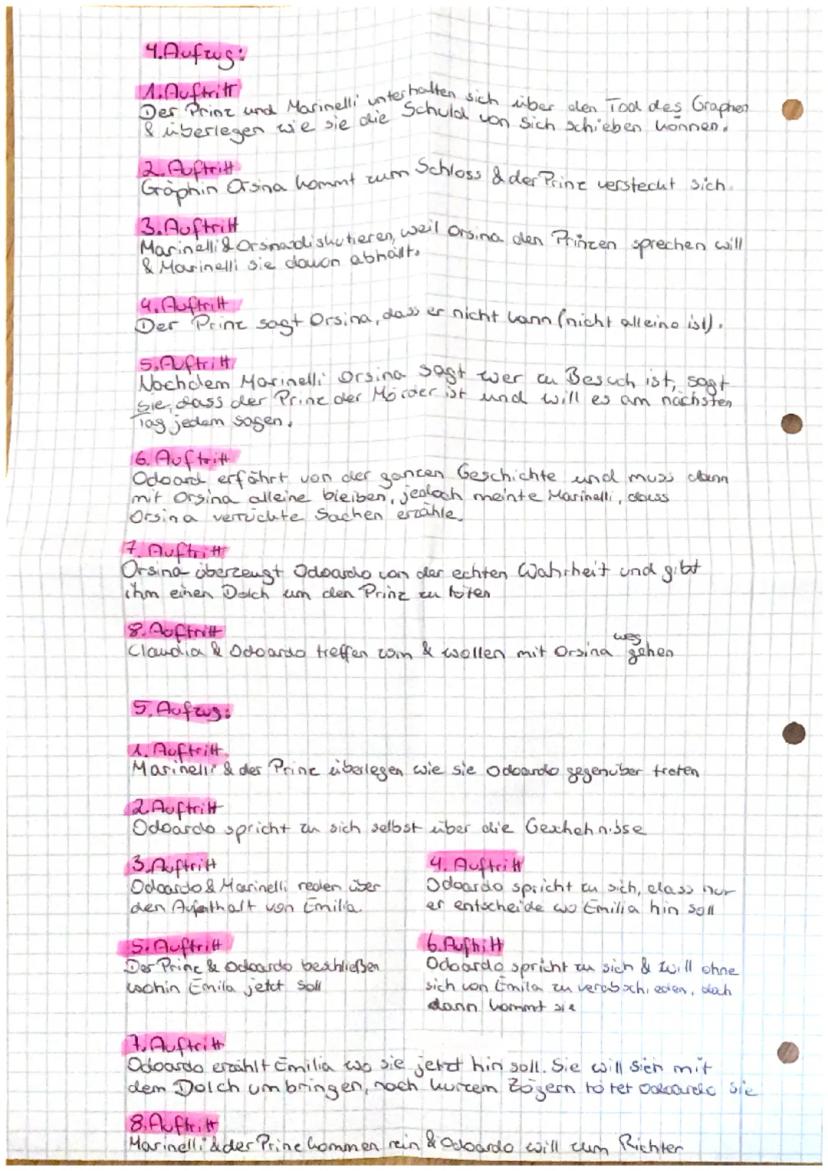 4. Aufzug:
1. Auftritt
Der Prinz und Marinelli unterhalten sich über den Tod des Graphen
& überlegen wie sie die Schuld von sich schieben können.
2. Auftritt
Gräphin Orsina kommt zum Schloss & der Prinz versteckt sich.
3. Auftritt
Marinelli & Orsina diskutieren, weil Orsina den Prinzen sprechen will
& Marinelli sie davon abhält.
4. Auftritt
Der Prinz sagt Orsina, dass er nicht kann (nicht alleine ist).
5. Auftritt
Nachdem Marinelli Orsina sagt wer zu Besuch ist, sagt
sie, dass der Prinz der Mörder ist und will es am nächsten
Tag jedem sagen.
6. Auftritt
Odoard erfährt von der ganzen Geschichte und muss dann
mit Orsina alleine bleiben, jedoch meinte Marinelli, dass
Orsina verrückte Sachen erzähle.
7. Auftritt
Orsina überzeugt Odoardo von der echten Wahrheit und gibt
ihm einen Dolch um den Prinz zu töten
8. Auftritt
Claudia & Odoardo treffen & wollen mit Orsina weg gehen
5. Aufzug:
1. Auftritt
Marinelli & der Prinz überlegen wie sie Odoardo gegenüber treten
2. Auftritt
Odoardo spricht zu sich selbst über die Geschehnisse
3. Auftritt
Odoardo & Marinelli reden über
den Aufenthalt von Emilia.
4. Auftritt
Odoardo spricht zu sich, dass nur
er entscheide wo Emilia hin soll
5. Auftritt
Der Prinz & Odoardo beschließen
wohin Emila jetzt soll
6. Auftritt
Odoardo spricht zu sich & will ohne
sich von Emila zu verabschieden, doch
dann kommt sie
7. Auftritt
Odoardo erzählt Emilia wo sie jetzt hin soll. Sie will sich mit
dem Dolch umbringen, nach kurzem Zögern tötet Odoardo sie
8. Auftritt
Marinelli & der Prinz kommen rein & Odoardo will zum Richter